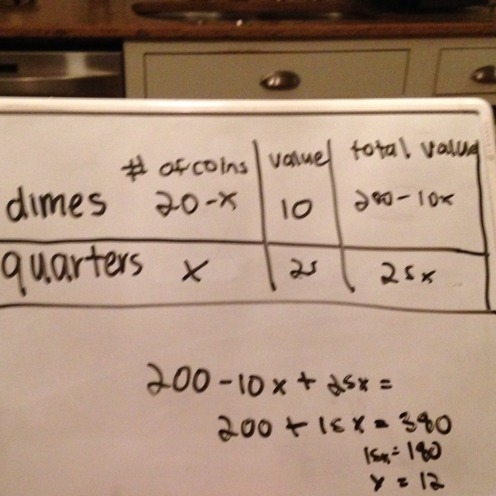 # of coins value total value
dimes 20-x 10 200-10x
quarters x 25 25x
200-10x+25x=
200+15x=380
15x=180
x=12